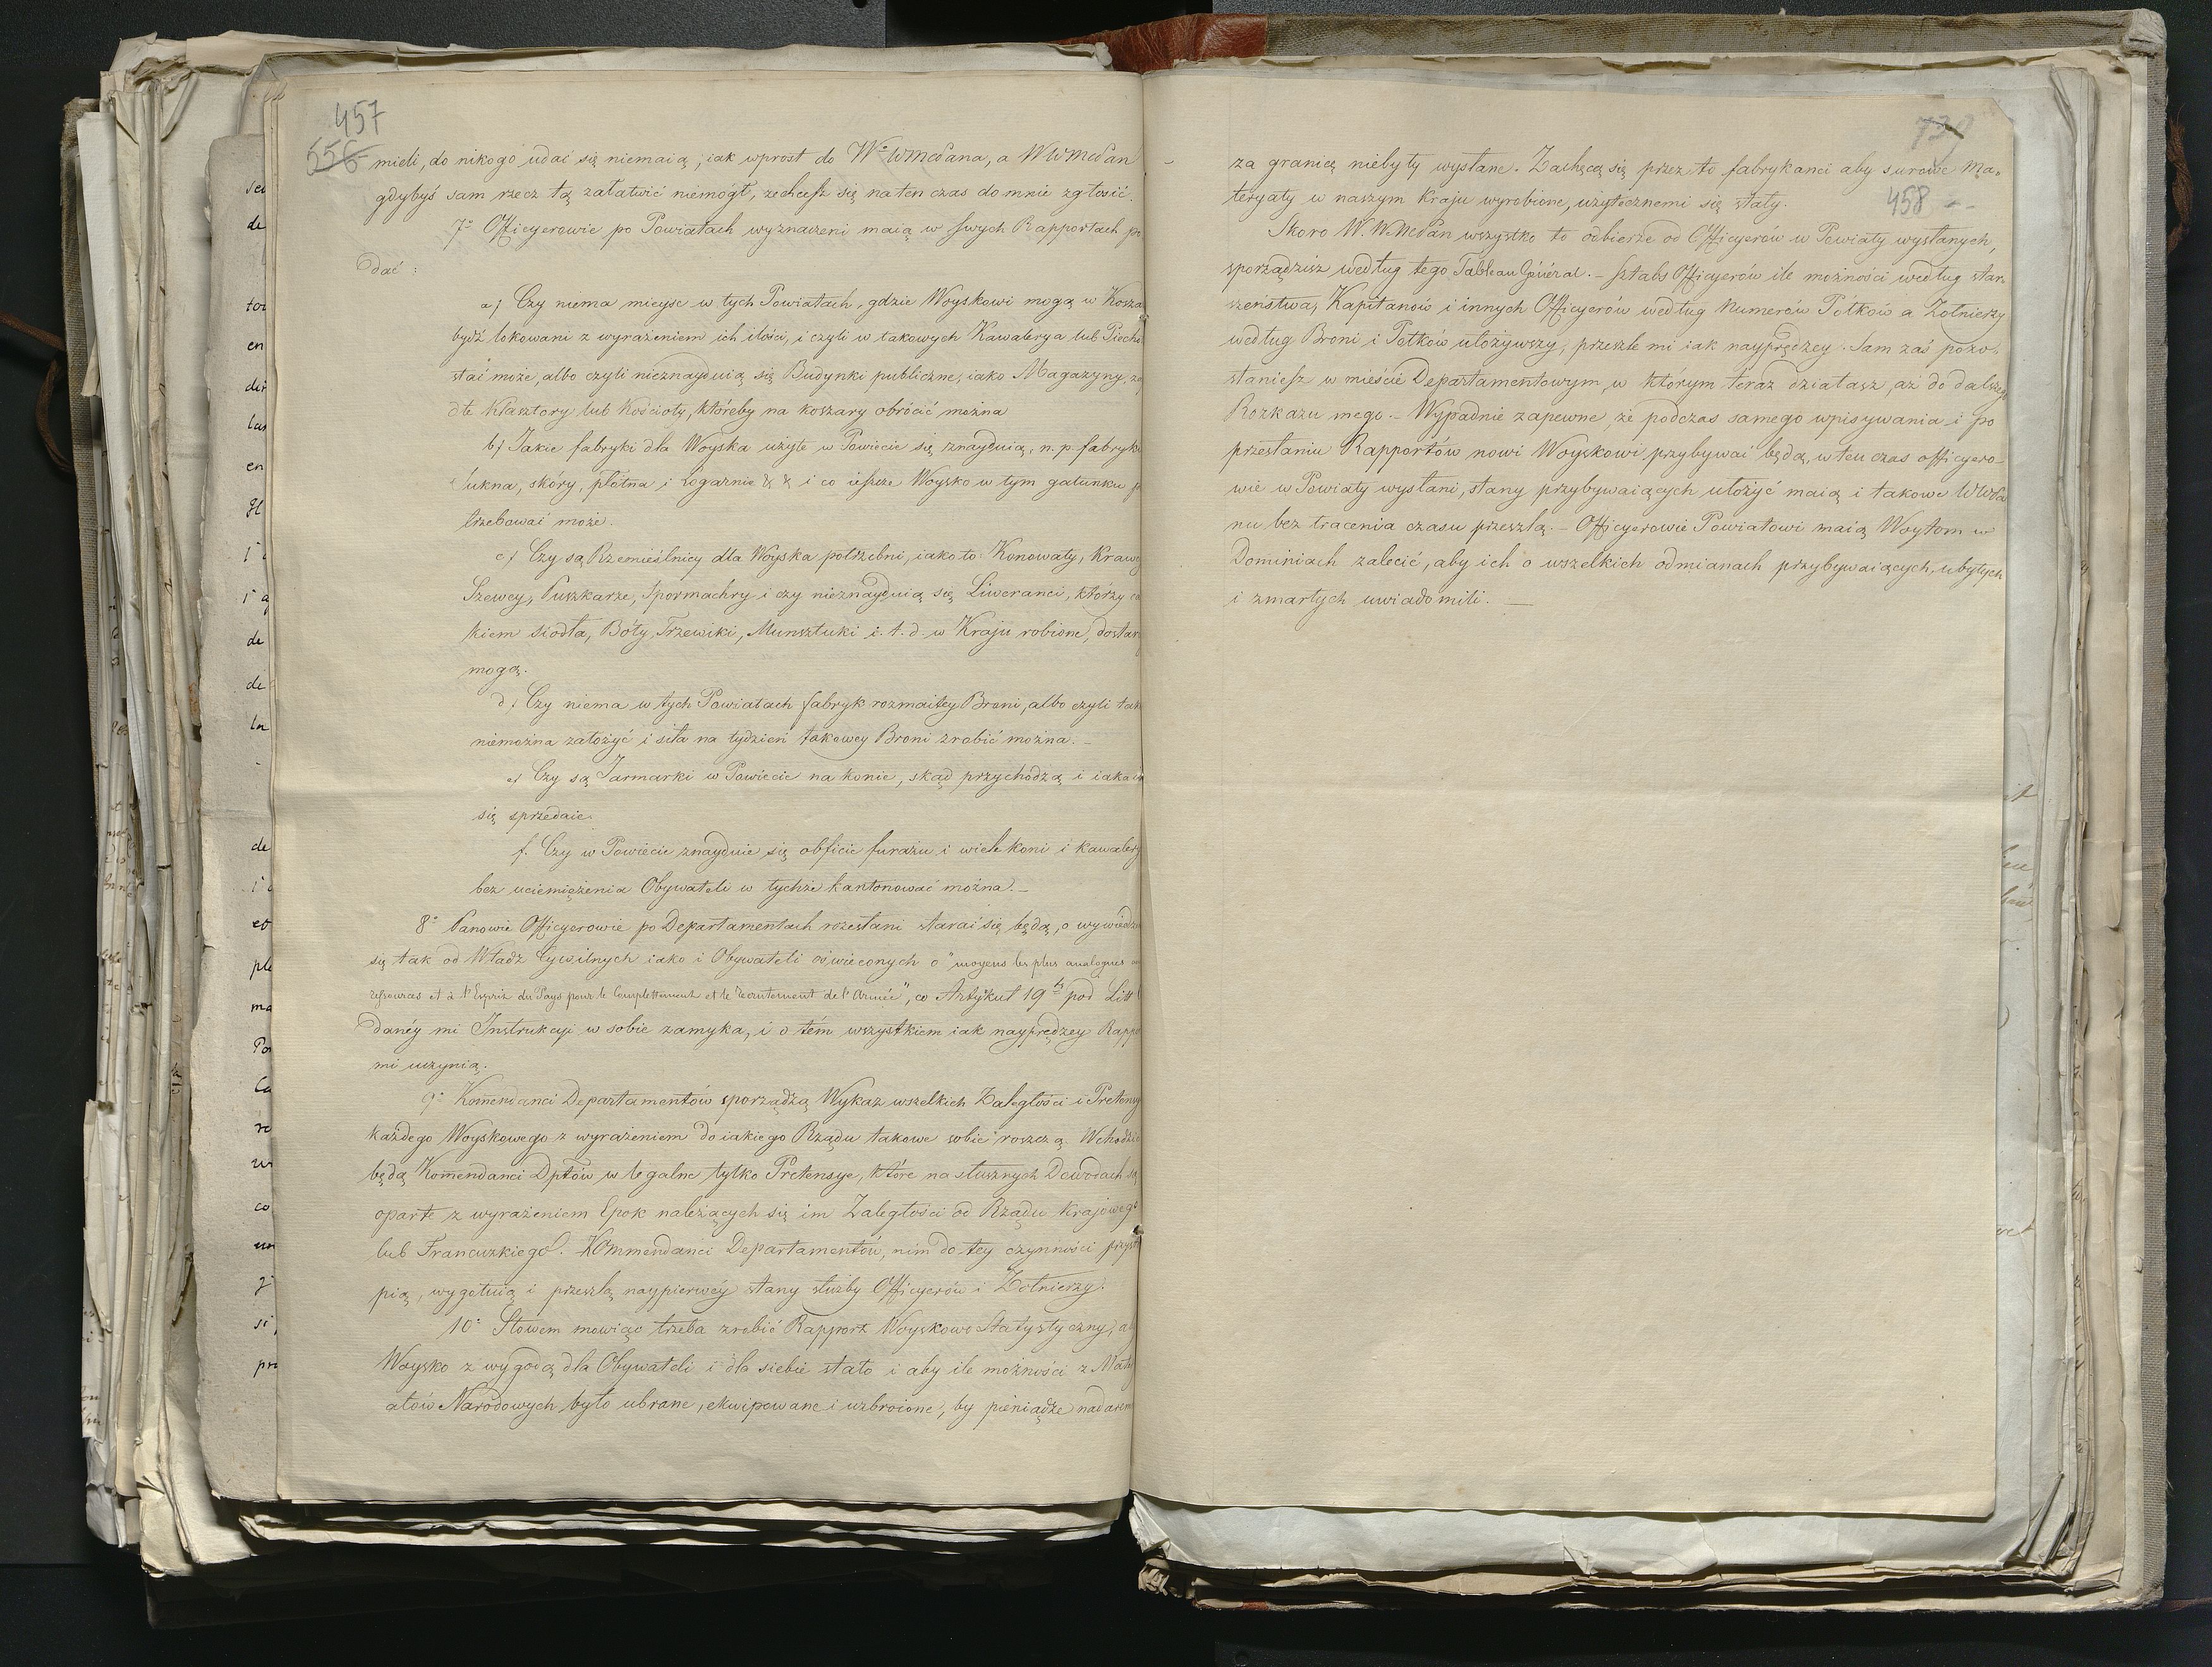 457
556
mieli, do nikogo udać się niemaią, iak wprost do Wº WMcdana, a WWMcdan
gdybyś sam rzecz tą załatwić niemógł, zechcesz się na ten czas do mnie zgłosić.
7º Officyerowie po Powiatach wyznaczeni maią w swych Rapportach po
dać:
a) Czy niema mieysc w tych Powiatach, gdzie Woyskowi mogą w Kosza
bydź lokowani z wyrażeniem ich ilości, i czyli w takowych Kawalerya lub Piecho
stać może, albo czyli nieznayduią się Budynki publiczne, iako Magazyny, za
dłe Klasztory lub Kościoły, któreby na koszary obrócić można
b) Jakie fabryki dla Woyska użyte w Powiecie się znayduią, n.p. fabryki
Sukna, skóry, płótna i Logarnie & & i co ieszcze Woysko w tym gatunku po
trzebować może.
c) Czy są Rzemieślnicy dla Woyska potrzebni, iako to: Konowały, Krawcy
Szewcy, Puszkarze, Spormachry i czy nieznayduią się Liweranci, którzy ca
kiem siodła, Bóty, Trzewiki, Munsztuki i.t.d. w Kraju robione, dostar
mogą.
d) Czy niema w tych Powiatach fabryk rozmaitey Broni, albo czyli tak
niemożna założyć i siła na tydzień takowey Broni zrobić można. –
e) Czy są Jarmarki w Powiecie na konie, skąd przychodzą i iaka
się sprzedaie.
f. Czy w Powiecie znayduie się obficie furażu i wiele koni i kawalery
bez uciemiężenia Obywateli w tychże kantonować można. –
8º Panowie Officyerowie po Departamentach rozesłani starać się będą, o wywiedze
się tak od Władz Cywilnych iako i Obywateli oświeconych o "moyens les plus analogues au
ressources et à l'Esprit du Pays pour le Complettement et le recrutement de l'Armée", co Artykuł 19ty pod Litt
danéy mi Instrukcyi w sobie zamyka, i o tém wszystkiem iak nayprędzey Rappo
mi uczynią.
9º Komendanci Departamentów sporządzą Wykaz wszelkich Zaległości i Pretensy
każdego Woyskowego z wyrażeniem do iakiego Rządu takowe sobie roszczą. Wchodzić
będą Komendanci Dptów w legalne tylko Pretensye, które na słusznych Dowodach są
oparte z wyrażeniem Epok należących się im Zaległości od Rządu Krajowego
lub Francuzkiego. Kommendanci Departamentów, nim do tey czynności przystą
pią, wygotuią i przeszlą naypierwéy stany służby Officyerów i Żołnierzy.
10º Słowem mowiąc trzeba zrobić Rapport Woyskowo Statystyczny, a
Woysko z wygodą dla Obywateli i dla siebie stało i aby ile możności z Mate
ałów Narodowych było ubrane, ekwipowane i uzbroione, by pieniądze nadarem
739
458
za granicę niebyły wysłane. Zachęcą się przez to fabrykanci aby surowe Ma„
teryały w naszym Kraju wyrobione, użytecznemi się stały.
Skoro W. WMcdan wszystko to odbierze od Officyerów w Powiaty wysłanych,
sporządzisz według tego Tableau Général. – Sztabs Officyerów ile możności według star„
szeństwa, Kapitanów i innych Officyerów według Numerów Pólków a Żołnierzy
według Broni i Pólków ułożywszy, przeszle mi iak nayprędzey. Sam zaś pozo„
staniesz w mieście Departamentowym, w którym teraz działasz, aż do dalszego
Rozkazu mego. – Wypadnie zapewne, że podczas samego wpisywania i po
przesłaniu Rapportów nowi Woyskowi przybywać będą, w ten czas officyero„
wie w Powiaty wysłani, stany przybywaiących ułożyć maią i takowe WWda
nu bez tracenia czasu przeszlą. – Officyerowie Powiatowi maią Woytom w
Dominiach zalecić, aby ich o wszelkich odmianach przybywaiących, ubyłych
i zmarłych uwiadomili. —